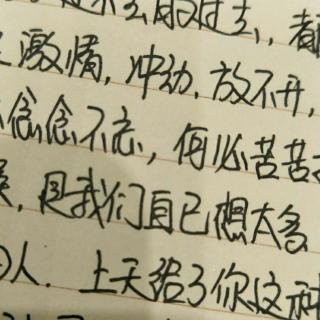 过去,都
激情,冲动,放不开,
念念不忘,何必苦苦
,是我们自已想太多
人.上天给了你这种